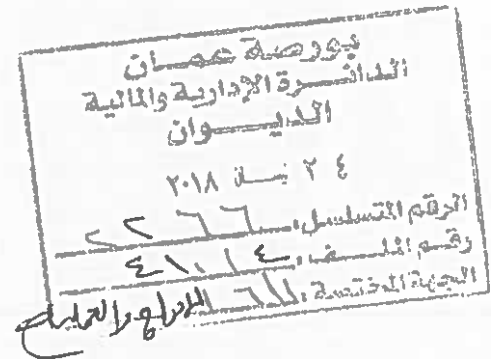 بورصة عمان
الدائرة الإدارية والمالية
الديوان
٢٤ نيسان ٢٠١٨
الرقم المتسلسل: ٢٢٦٦
رقم الملف: ٤١٠١٤
الجهة المختصة: الإدراج والعمليات